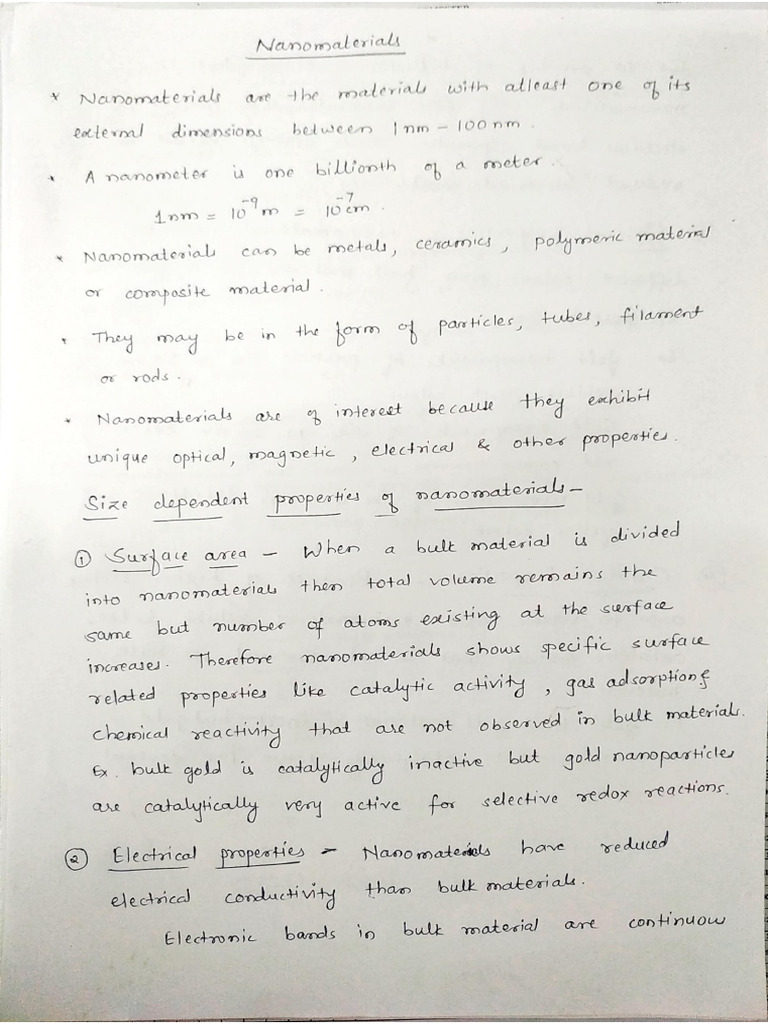 Nanomaterials
* Nanomaterials are the materials with atleast one of its
external dimensions between 1nm - 100nm.
* A nanometer is one billionth of a meter.
1nm = 10⁻⁹m = 10⁻⁷cm.
* Nanomaterials can be metals, ceramics, polymeric material
or composite material.
* They may be in the form of particles, tubes, filament
or rods.
* Nanomaterials are of interest because they exhibit
unique optical, magnetic, electrical & other properties.
Size dependent properties of nanomaterials -
① Surface area - When a bulk material is divided
into nanomaterials then total volume remains the
same but number of atoms existing at the surface
increases. Therefore nanomaterials shows specific surface
related properties like catalytic activity, gas adsorption &
chemical reactivity that are not observed in bulk materials.
Ex. bulk gold is catalytically inactive but gold nanoparticles
are catalytically very active for selective redox reactions.
② Electrical properties - Nanomaterials have reduced
electrical conductivity than bulk materials.
Electronic bands in bulk material are continuous